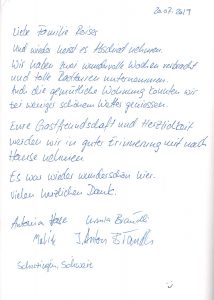 20.07.2019
Liebe Familie
Und wieder heisst es Abschied nehmen.
Wir haben zwei wundervolle Wochen verbracht
und tolle Radtouren unternommen.
Auch die gemütliche Wohnung konnten wir
bei weniger schönem Wetter geniessen.
Eure Gastfreundschaft und Herzlichkeit
werden wir in guter Erinnerung mit nach
Hause nehmen.
Es war wieder wunderschön hier.
Vielen herzlichen Dank.
Antonia
Anton
Schweiz